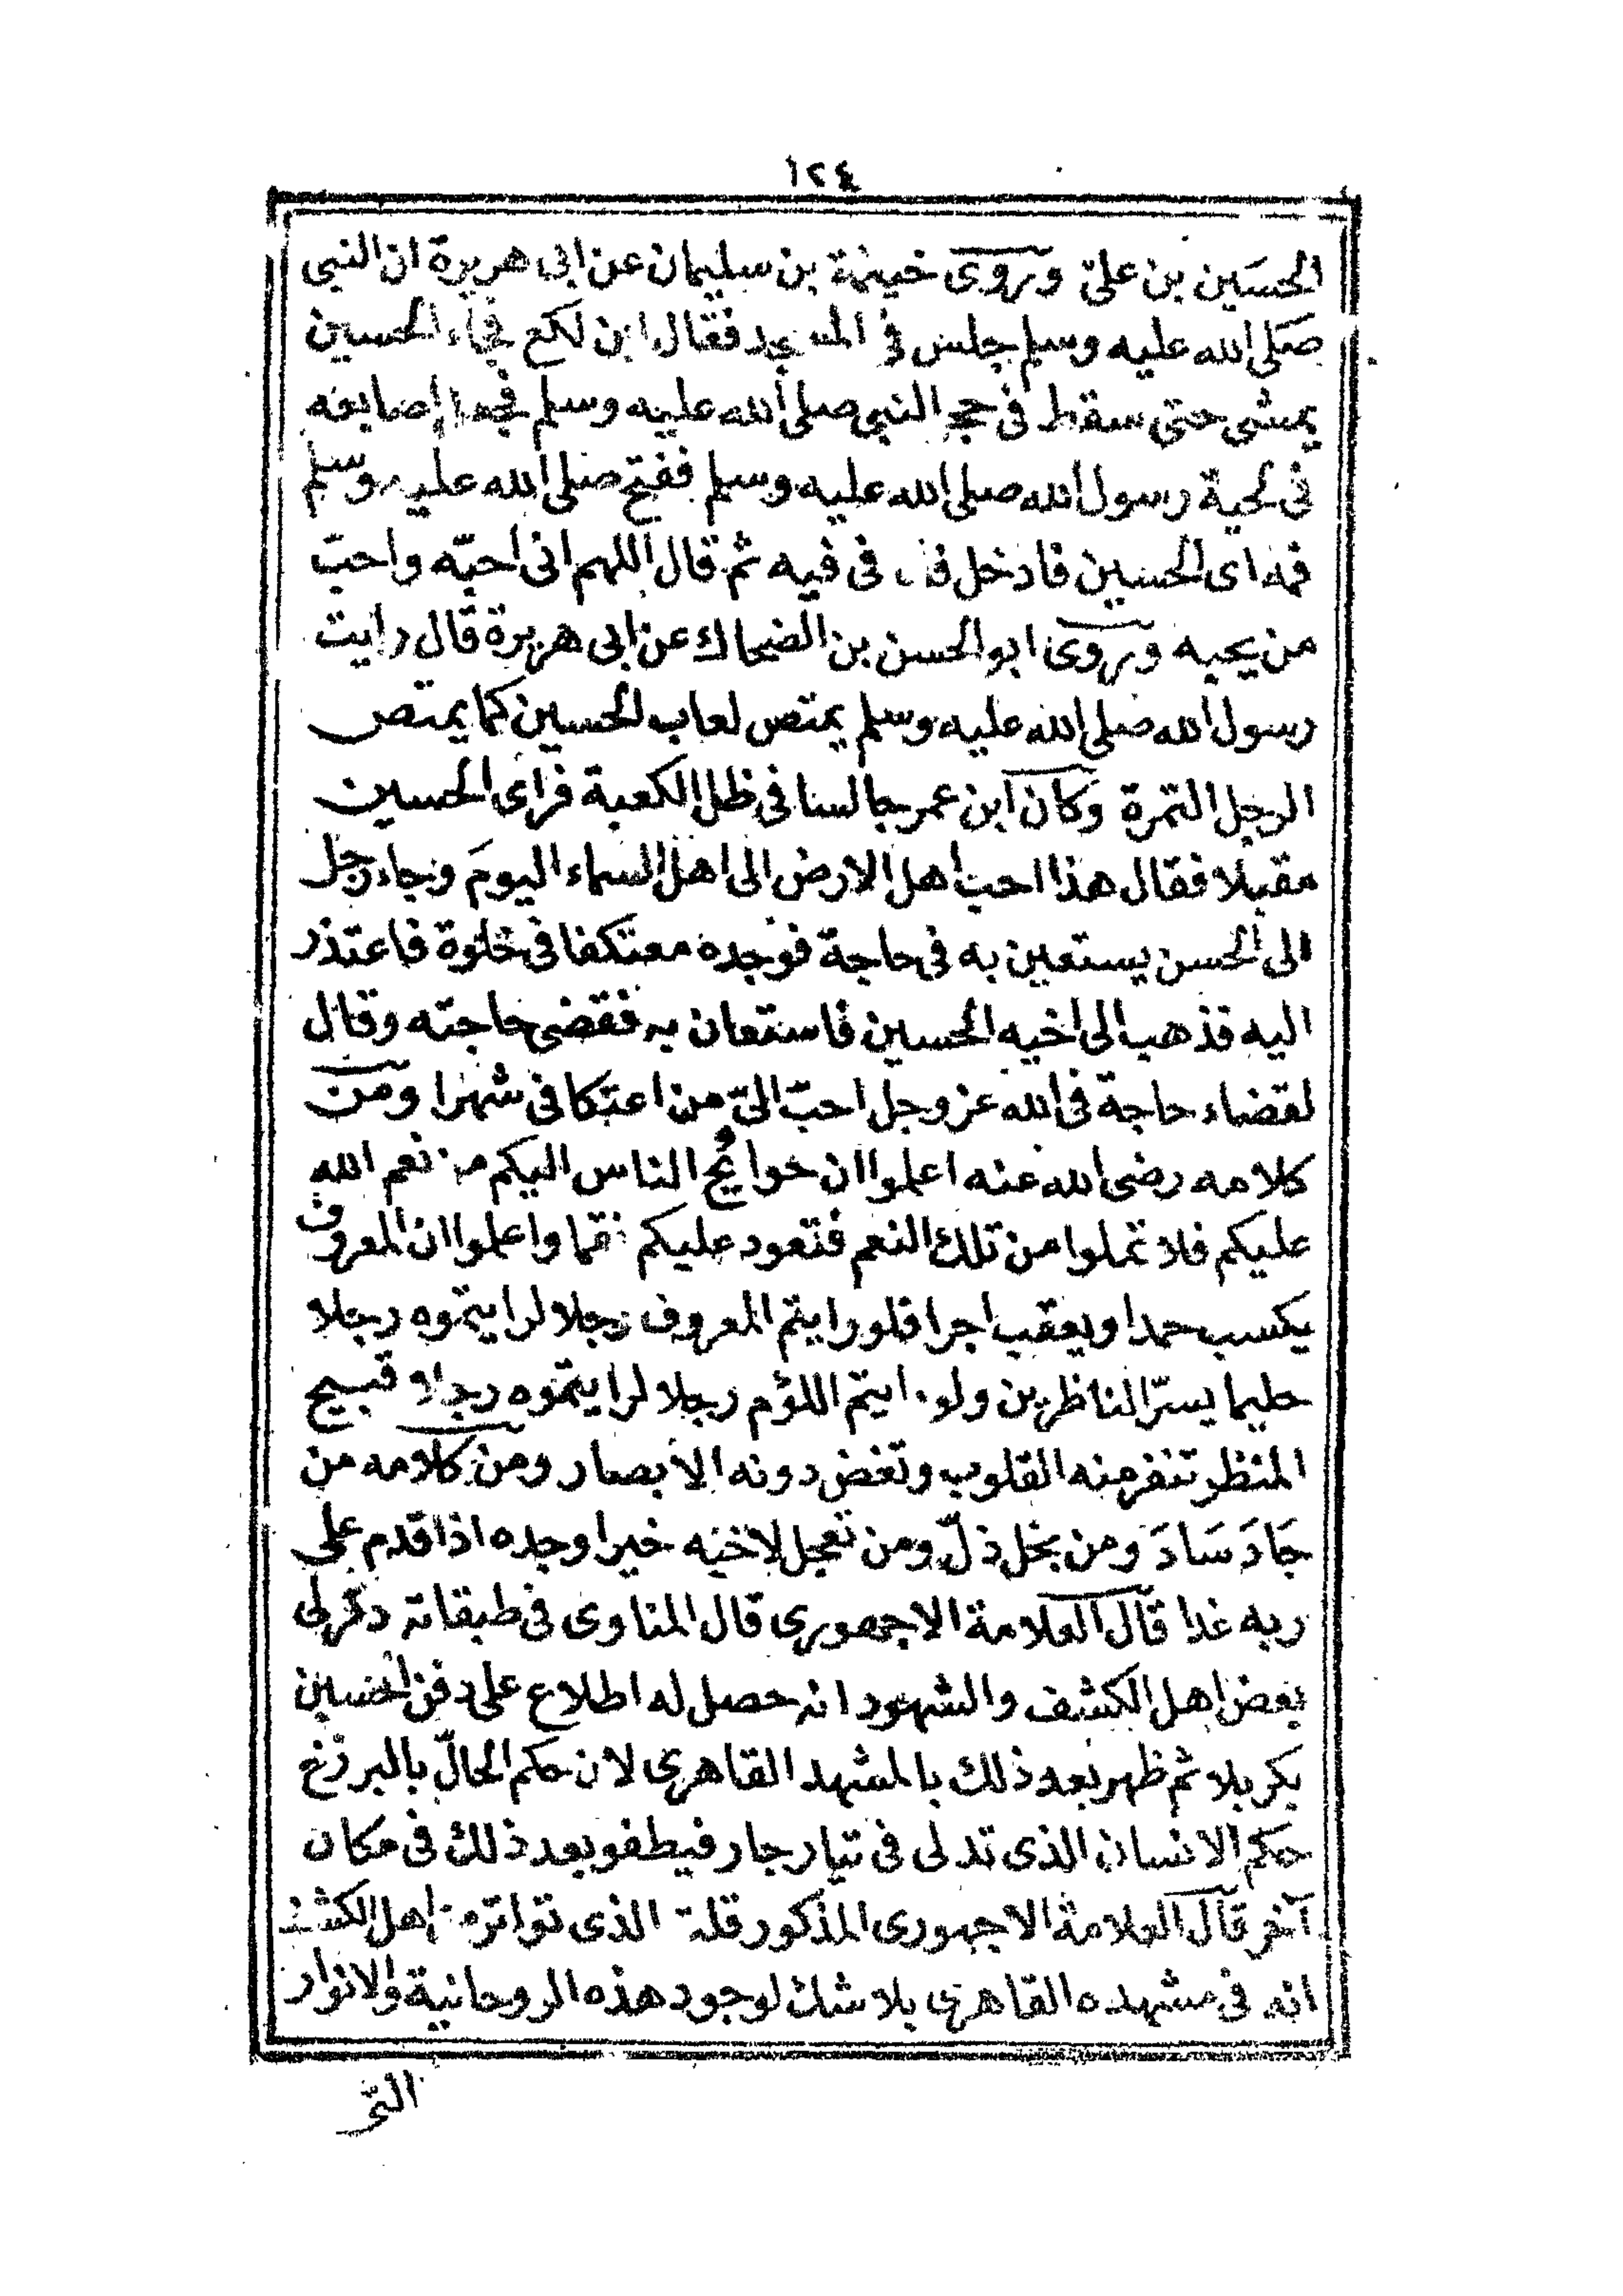 ١٢٤
الحسَين بن علىّ وروى خيثمة بن سليمان عن ابى هريرة ان النبى
صَلى الله عليه وسلم جلس فى المسجد فقال اين لكع فجاء الحسين
يمشى حتى سقط فى حجر النبى صلى الله عليه وسلم فجعل اصابعه
فى لحية رسول الله صلى الله عليه وسلم ففتح صلى الله عليه وسلم
فمه اى الحسين فادخل فاه فى فيه ثم قال اللهم انى احبّه واحبّ
من يحبه وروى ابو الحسن بن الضحاك عن ابى هريرة قال رايت
رسول الله صلى الله عليه وسلم يمتص لعاب الحسين كما يمتص
الرجل التمرة وكان ابن عمر جالسا فى ظل الكعبة فراى الحسين
مقبلا فقال هذا احب اهل الارض الى اهل السماء اليومَ وجاء رجل
الى الحسن يستعين به فى حاجة فوجده معتكفا فى خلوة فاعتذر
اليه فذهب الى اخيه الحسين فاستعان به فقضى حاجته وقال
لقضاء حاجة فى الله عز وجل احبّ الىّ من اعتكافى شهرا ومن
كلامه رضى الله عنه اعلموا ان حوائج الناس اليكم من نعم الله
عليكم فلا تملوا من تلك النعم فتعود عليكم نقما واعلموا ان المعروف
يكسب حمدا ويعقب اجرا فلو رايتم المعروف رجلا لرايتموه رجلا
حليما يسرّ الناظرين ولو رايتم اللؤم رجلا لرايتموه رجلا قبيح
المنظر تنفر منه القلوب وتغض دونه الابصار ومن كلامه من
جَادَ سَادَ ومن بخل ذلّ ومن تعجل لاخيه خيرا وجده اذا قدم على
ربه غدا قال العلامة الاجهورى قال المناوى فى طبقاته ذكر لى
بعض اهل الكشف والشهود انه حصل له اطلاع على دفن الحسين
بكربلا ثم ظهر بعد ذلك بالمشهد القاهرى لان حكم الحالّ بالبرزخ
حكم الانسان الذى تدلى فى تيار جار فيطفو بعد ذلك فى مكان
آخر قال العلامة الاجهورى المذكور قلت الذى تواتر من اهل الكشف
انه فى مشهده القاهرى بلا شك لوجود هذه الروحانية والانوار